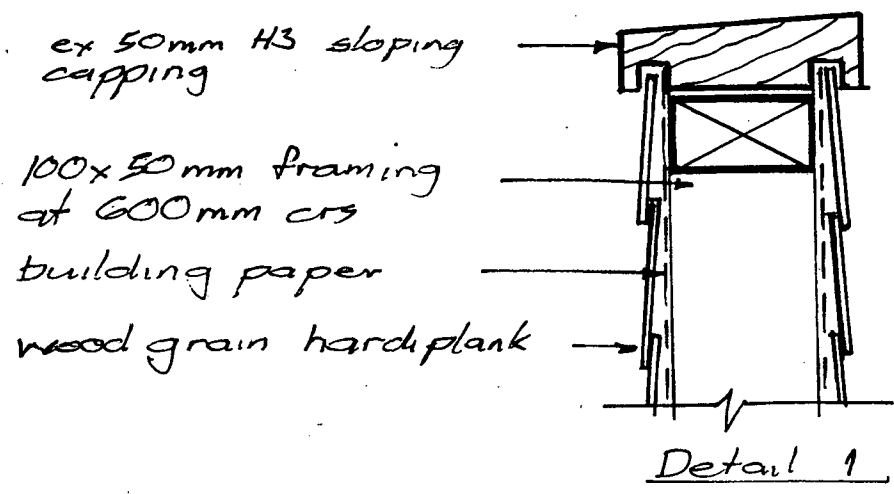 ex 50mm H3 sloping
capping
100x50mm framing
at 600mm crs
building paper
wood grain hardiplank
Detail 1